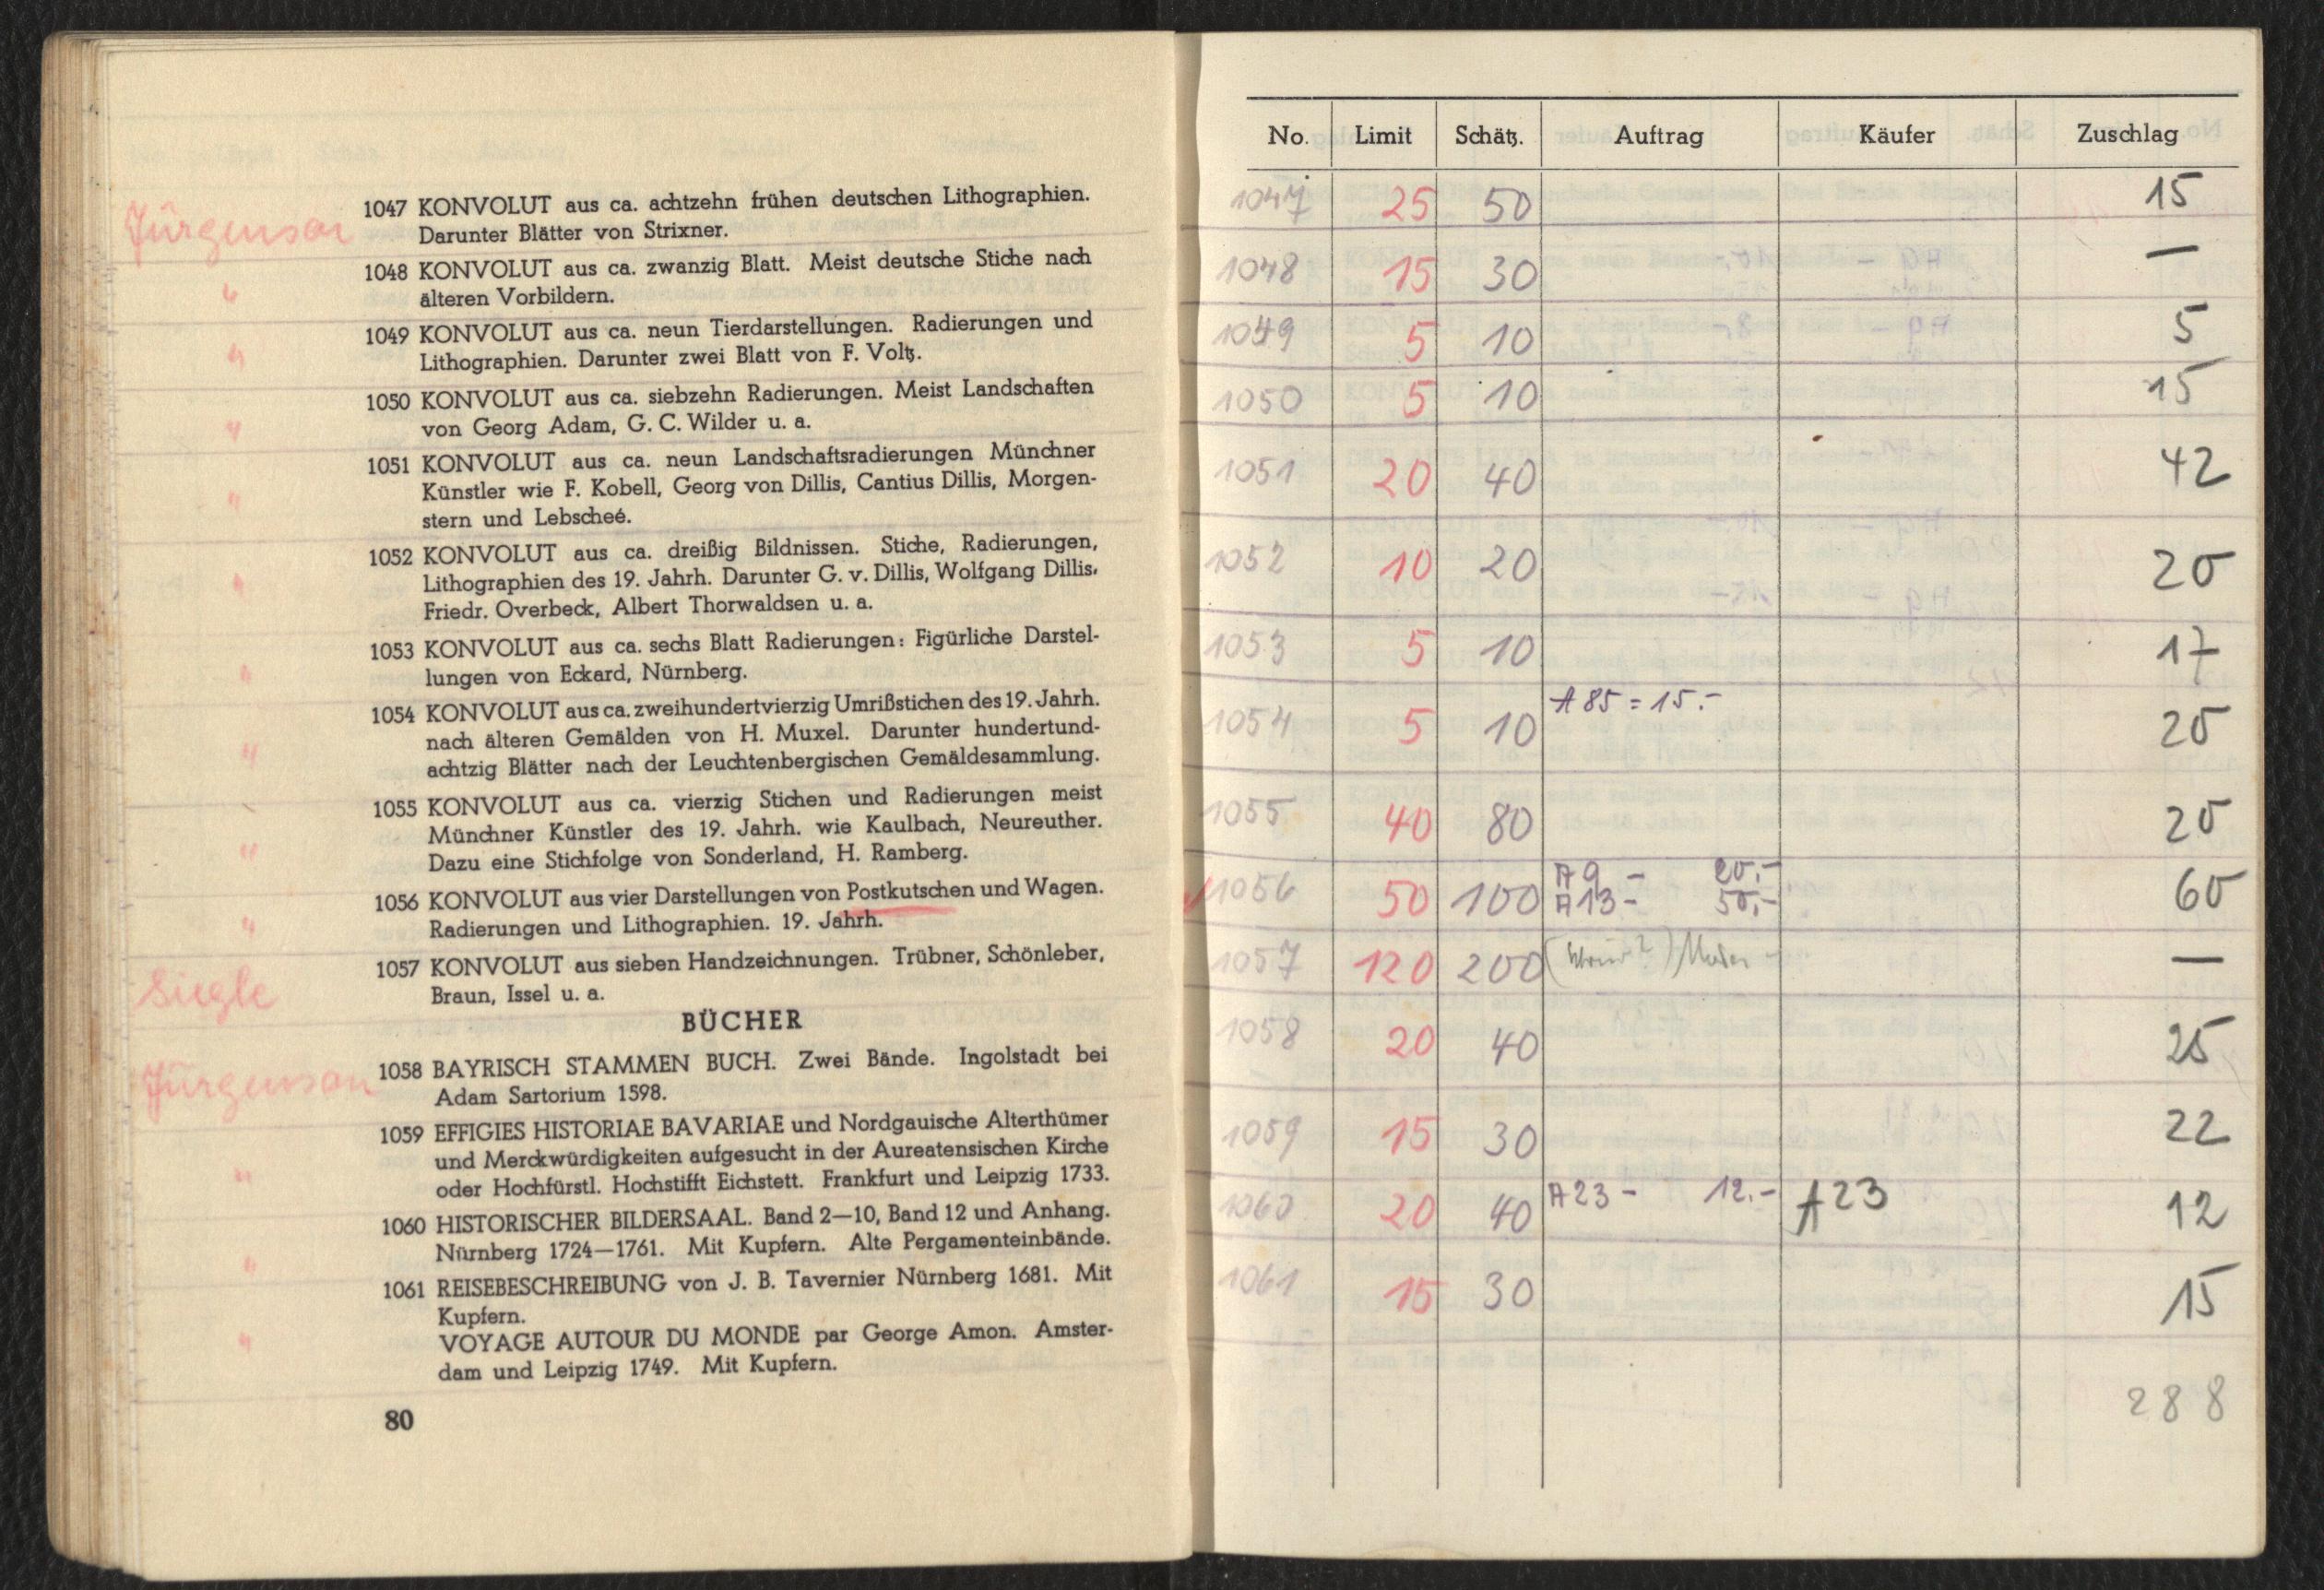 Jürgenson
1047 KONVOLUT aus ca. achtzehn frühen deutschen Lithographien.
Darunter Blätter von Strixner.
"
1048 KONVOLUT aus ca. zwanzig Blatt. Meist deutsche Stiche nach
älteren Vorbildern.
"
1049 KONVOLUT aus ca. neun Tierdarstellungen. Radierungen und
Lithographien. Darunter zwei Blatt von F. Voltz.
"
1050 KONVOLUT aus ca. siebzehn Radierungen. Meist Landschaften
von Georg Adam, G. C. Wilder u. a.
"
1051 KONVOLUT aus ca. neun Landschaftsradierungen Münchner
Künstler wie F. Kobell, Georg von Dillis, Cantius Dillis, Morgen-
stern und Lebscheé.
"
1052 KONVOLUT aus ca. dreißig Bildnissen. Stiche, Radierungen,
Lithographien des 19. Jahrh. Darunter G. v. Dillis, Wolfgang Dillis,
Friedr. Overbeck, Albert Thorwaldsen u. a.
"
1053 KONVOLUT aus ca. sechs Blatt Radierungen: Figürliche Darstel-
lungen von Eckard, Nürnberg.
"
1054 KONVOLUT aus ca. zweihundertvierzig Umrißstichen des 19. Jahrh.
nach älteren Gemälden von H. Muxel. Darunter hundertund-
achtzig Blätter nach der Leuchtenbergischen Gemäldesammlung.
"
1055 KONVOLUT aus ca. vierzig Stichen und Radierungen meist
Münchner Künstler des 19. Jahrh. wie Kaulbach, Neureuther.
Dazu eine Stichfolge von Sonderland, H. Ramberg.
"
1056 KONVOLUT aus vier Darstellungen von Postkutschen und Wagen.
Radierungen und Lithographien. 19. Jahrh.
Siegle
1057 KONVOLUT aus sieben Handzeichnungen. Trübner, Schönleber,
Braun, Issel u. a.
BÜCHER
Jürgenson
1058 BAYRISCH STAMMEN BUCH. Zwei Bände. Ingolstadt bei
Adam Sartorium 1598.
"
1059 EFFIGIES HISTORIAE BAVARIAE und Nordgauische Alterthümer
und Merckwürdigkeiten aufgesucht in der Aureatensischen Kirche
oder Hochfürstl. Hochstifft Eichstett. Frankfurt und Leipzig 1733.
"
1060 HISTORISCHER BILDERSAAL. Band 2—10, Band 12 und Anhang.
Nürnberg 1724—1761. Mit Kupfern. Alte Pergamenteinbände.
"
1061 REISEBESCHREIBUNG von J. B. Tavernier Nürnberg 1681. Mit
Kupfern.
VOYAGE AUTOUR DU MONDE par George Amon. Amster-
dam und Leipzig 1749. Mit Kupfern.
80
No. Limit Schätz. Auftrag Käufer Zuschlag
1047 25 50 15
1048 15 30 —
1049 5 10 5
1050 5 10 15
1051 20 40 42
1052 10 20 20
1053 5 10 17
1054 5 10 A 85 = 15.- 20
1055 40 80 20
1056 50 100 A 9 - 20.- 60
A 13 - 50.-
1057 120 200 —
1058 20 40 25
1059 15 30 22
1060 20 40 A 23 - 12.- A 23 12
1061 15 30 15
288